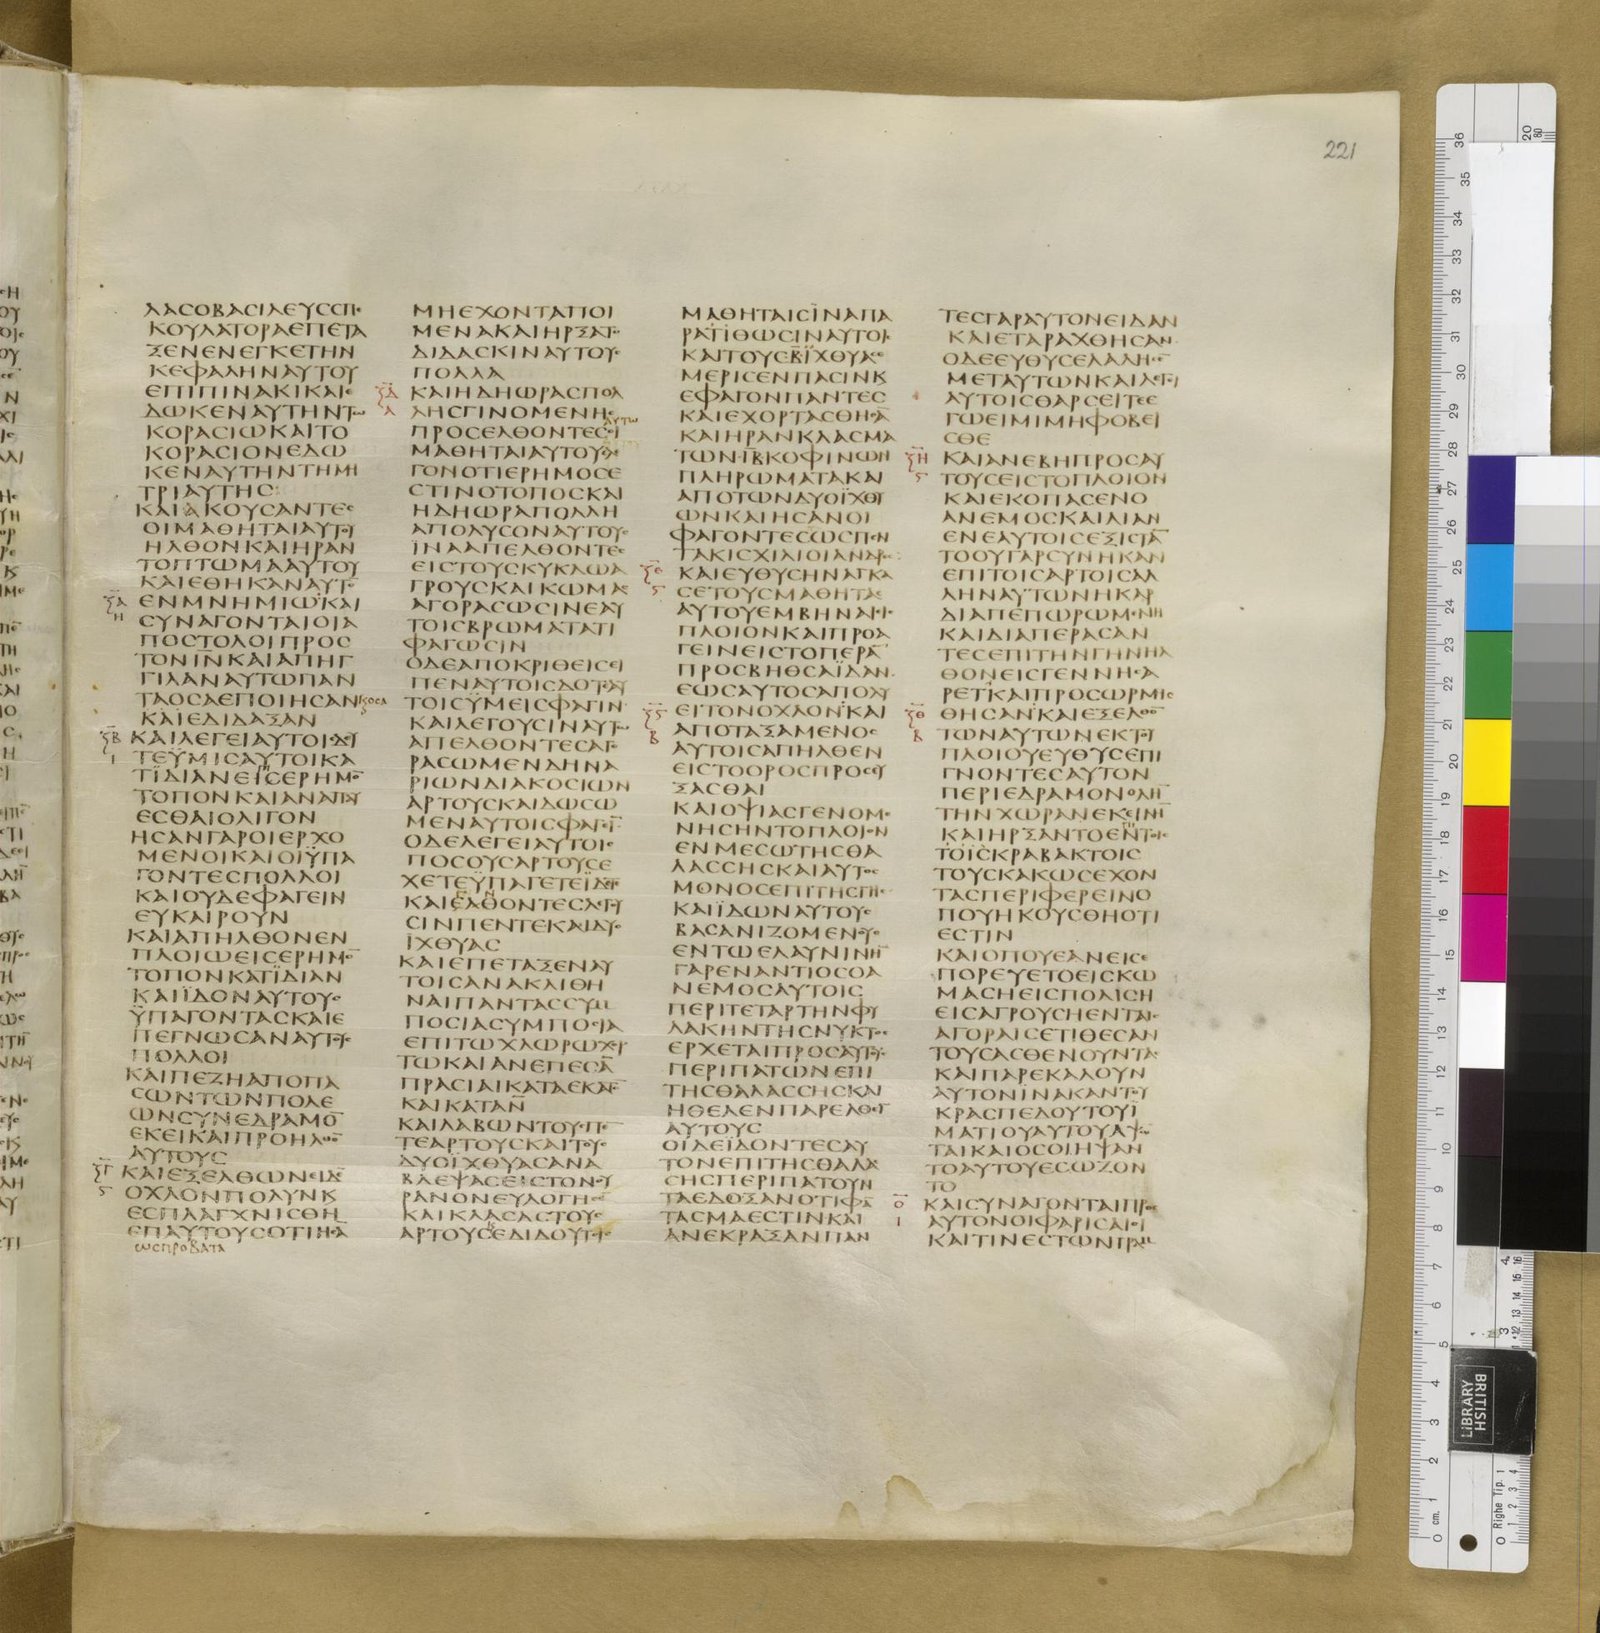 221
ΛΑϹΟΒΑϹΙΛΕΥϹϹΠΕ
ΚΟΥΛΑΤΟΡΑΕΠΕΤΑ
ΞΕΝΕΝΕΓΚΕΤΗΝ
ΚΕΦΑΛΗΝΑΥΤΟΥ
ΕΠΙΠΙΝΑΚΙΚΑΙΕ
ΔΩΚΕΝΑΥΤΗΝΤΩ
ΚΟΡΑϹΙΩΚΑΙΤΟ
ΚΟΡΑϹΙΟΝΕΔΩ
ΚΕΝΑΥΤΗΝΤΗΜΗ
ΤΡΙΑΥΤΗϹ
ΚΑΙΑΚΟΥϹΑΝΤΕϹ
ΟΙΜΑΘΗΤΑΙΑΥΤΟΥ
ΗΛΘΟΝΚΑΙΗΡΑΝ
ΤΟΠΤΩΜΑΑΥΤΟΥ
ΚΑΙΕΘΗΚΑΝΑΥΤΟ̅
ΞΑ
Η
ΕΝΜΝΗΜΙΩΚΑΙ
ϹΥΝΑΓΟΝΤΑΙΟΙΑ
ΠΟϹΤΟΛΟΙΠΡΟϹ
ΤΟΝΙ̅Ν̅ΚΑΙΑΠΗΓ
ΓΙΛΑΝΑΥΤΩΠΑΝ
ΤΑΟϹΑΕΠΟΙΗϹΑΝΚ,ΟϹΑ
ΚΑΙΕΔΙΔΑΞΑΝ
ΞΒ
Ι
ΚΑΙΛΕΓΕΙΑΥΤΟΙϹΔΕΥ
ΤΕΫΜΙϹΑΥΤΟΙΚΑ
ΤΙΔΙΑΝΕΙϹΕΡΗΜΟ̅
ΤΟΠΟΝΚΑΙΑΝΑΠΑΥ
ΕϹΘΑΙΟΛΙΓΟΝ
ΗϹΑΝΓΑΡΟΙΕΡΧΟ
ΜΕΝΟΙΚΑΙΟΙΫΠΑ
ΓΟΝΤΕϹΠΟΛΛΟΙ
ΚΑΙΟΥΔΕΦΑΓΕΙΝ
ΕΥΚΑΙΡΟΥΝ
ΚΑΙΑΠΗΛΘΟΝΕΝ
ΠΛΟΙΩΕΙϹΕΡΗΜΟ̅
ΤΟΠΟΝΚΑΤΪΔΙΑΝ
ΚΑΙΪΔΟΝΑΥΤΟΥϹ
ΫΠΑΓΟΝΤΑϹΚΑΙΕ
ΠΕΓΝΩϹΑΝΑΥΤΟΥϹ
ΠΟΛΛΟΙ
ΚΑΙΠΕΖΗΑΠΟΠΑ
ϹΩΝΤΩΝΠΟΛΕ
ΩΝϹΥΝΕΔΡΑΜΟ̅
ΕΚΕΙΚΑΙΠΡΟΗΛΘΟ̅
ΑΥΤΟΥϹ
ΞΓ
Ϛ
ΚΑΙΕΞΕΛΘΩΝΕΙΔΕ̅
ΟΧΛΟΝΠΟΛΥΝΚ
ΕϹΠΛΑΓΧΝΙϹΘΗ
ΕΠΑΥΤΟΥϹΟΤΙΗϹΑ̅
ΩϹΠΡΟΒΑΤΑ
ΜΗΕΧΟΝΤΑΠΟΙ
ΜΕΝΑΚΑΙΗΡΞΑΤΟ
ΔΙΔΑϹΚΙΝΑΥΤΟΥϹ
ΠΟΛΛΑ
ΞΔ
Α
ΚΑΙΗΔΗΩΡΑϹΠΟΛ
ΛΗϹΓΙΝΟΜΕΝΗϹ
ΑΥΤΩ
ΠΡΟϹΕΛΘΟΝΤΕϹΟΙ
ΜΑΘΗΤΑΙΑΥΤΟΥΕΛΕ
ΓΟΝΟΤΙΕΡΗΜΟϹΕ
ϹΤΙΝΟΤΟΠΟϹΚΑΙ
ΗΔΗΩΡΑΠΟΛΛΗ
ΑΠΟΛΥϹΟΝΑΥΤΟΥϹ
ΪΝΑΑΠΕΛΘΟΝΤΕϹ
ΕΙϹΤΟΥϹΚΥΚΛΩΑ
ΓΡΟΥϹΚΑΙΚΩΜΑϹ
ΑΓΟΡΑϹΩϹΙΝΕΑΥ
ΤΟΙϹΒΡΩΜΑΤΑΤΙ
ΦΑΓΩϹΙΝ
ΟΔΕΑΠΟΚΡΙΘΕΙϹΕΙ
ΠΕΝΑΥΤΟΙϹΔΟΤΕΑΥ
ΤΟΙϹΫΜΕΙϹΦΑΓΙΝ
ΚΑΙΛΕΓΟΥϹΙΝΑΥΤΩ
ΑΠΕΛΘΟΝΤΕϹΑΓΟ
ΡΑϹΩΜΕΝΔΗΝΑ
ΡΙΩΝΔΙΑΚΟϹΙΩΝ
ΑΡΤΟΥϹΚΑΙΔΩϹΩ
ΜΕΝΑΥΤΟΙϹΦΑΓΕΙ̅
ΟΔΕΛΕΓΕΙΑΥΤΟΙϹ
ΠΟϹΟΥϹΑΡΤΟΥϹΕ
ΧΕΤΕΫΠΑΓΕΤΕΪΔΕΤΕ
ΚΑΙΕΛΘΟΝΤΕϹΛΕΓΟΥ
ϹΙΝΠΕΝΤΕΚΑΙΔΥΟ
ΪΧΘΥΑϹ
ΚΑΙΕΠΕΤΑΞΕΝΑΥ
ΤΟΙϹΑΝΑΚΛΙΘΗ
ΝΑΙΠΑΝΤΑϹϹΥΜ
ΠΟϹΙΑϹΥΜΠΟϹΙΑ
ΕΠΙΤΩΧΛΩΡΩΧΟΡ
ΤΩΚΑΙΑΝΕΠΕϹΑ̅
ΠΡΑϹΙΑΙΚΑΤΑΕΚΑΤΟ̅
ΚΑΙΚΑΤΑΝ̅
ΚΑΙΛΑΒΩΝΤΟΥϹΠΕ̅
ΤΕΑΡΤΟΥϹΚΑΙΤΟΥϹ
ΔΥΟΪΧΘΥΑϹΑΝΑ
ΒΛΕΨΑϹΕΙϹΤΟΝΟΥ
ΡΑΝΟΝΕΥΛΟΓΗϹΕ̅
ΚΑΙΚΛΑϹΑϹΤΟΥϹ
ΑΡΤΟΥϹΕΔΙΔΟΥΤΟΙϹ
ΜΑΘΗΤΑΙϹΪΝΑΠΑ
ΡΑΤΙΘΩϹΙΝΑΥΤΟΙϹ
ΚΑΙΤΟΥϹΒ̅ΪΧΘΥΑϹ
ΜΕΡΙϹΕΝΠΑϹΙΝΚ
ΕΦΑΓΟΝΠΑΝΤΕϹ
ΚΑΙΕΧΟΡΤΑϹΘΗϹΑ̅
ΚΑΙΗΡΑΝΚΛΑϹΜΑ
ΤΩΝΙΒΚΟΦΙΝΩΝ
ΠΛΗΡΩΜΑΤΑΚΑΙ
ΑΠΟΤΩΝΔΥΟΪΧΘΥ
ΩΝΚΑΙΗϹΑΝΟΙ
ΦΑΓΟΝΤΕϹΩϹΠΕΝ
ΤΑΚΙϹΧΙΛΙΟΙΑΝΔΡΕϹ
ΞΕ
Ϛ
ΚΑΙΕΥΘΥϹΗΝΑΓΚΑ
ϹΕΤΟΥϹΜΑΘΗΤΑϹ
ΑΥΤΟΥΕΜΒΗΝΑΙΕΙϹ
ΠΛΟΙΟΝΚΑΙΠΡΟΑ
ΓΕΙΝΕΙϹΤΟΠΕΡΑ̅
ΠΡΟϹΒΗΘϹΑΪΔΑΝ
ΕΩϹΑΥΤΟϹΑΠΟΛΥ
ΞϚ
Β
ΕΙΤΟΝΟΧΛΟΝΚΑΙ
ΑΠΟΤΑΞΑΜΕΝΟϹ
ΑΥΤΟΙϹΑΠΗΛΘΕΝ
ΕΙϹΤΟΟΡΟϹΠΡΟϹΕΥ
ΞΑϹΘΑΙ
ΚΑΙΟΨΙΑϹΓΕΝΟΜΕ
ΝΗϹΗΝΤΟΠΛΟΙΟΝ
ΕΝΜΕϹΩΤΗϹΘΑ
ΛΑϹϹΗϹΚΑΙΑΥΤΟϹ
ΜΟΝΟϹΕΠΙΤΗϹΓΗϹ
ΚΑΙΪΔΩΝΑΥΤΟΥϹ
ΒΑϹΑΝΙΖΟΜΕΝΟΥϹ
ΕΝΤΩΕΛΑΥΝΙΝΗ̅
ΓΑΡΕΝΑΝΤΙΟϹΟΑ
ΝΕΜΟϹΑΥΤΟΙϹ
ΠΕΡΙΤΕΤΑΡΤΗΝΦΥ
ΛΑΚΗΝΤΗϹΝΥΚΤΟϹ
ΕΡΧΕΤΑΙΠΡΟϹΑΥΤΟΥϹ
ΠΕΡΙΠΑΤΩΝΕΠΙ
ΤΗϹΘΑΛΑϹϹΗϹΚΑΙ
ΗΘΕΛΕΝΠΑΡΕΛΘΕΙ̅
ΑΥΤΟΥϹ
ΟΙΔΕΪΔΟΝΤΕϹΑΥ
ΤΟΝΕΠΙΤΗϹΘΑΛΑϹ
ϹΗϹΠΕΡΙΠΑΤΟΥΝ
ΤΑΕΔΟΞΑΝΟΤΙΦΑ̅
ΤΑϹΜΑΕϹΤΙΝΚΑΙ
ΑΝΕΚΡΑΞΑΝΠΑΝ
ΤΕϹΓΑΡΑΥΤΟΝΕΙΔΑΝ
ΚΑΙΕΤΑΡΑΧΘΗϹΑΝ
ΟΔΕΕΥΘΥϹΕΛΑΛΗϹΕ̅
ΜΕΤΑΥΤΩΝΚΑΙΛΕΓΕΙ
ΑΥΤΟΙϹΘΑΡϹΕΙΤΕΕ
ΓΩΕΙΜΙΜΗΦΟΒΕΙ
ϹΘΕ
ΞΗ
Ϛ
ΚΑΙΑΝΕΒΗΠΡΟϹΑΥ
ΤΟΥϹΕΙϹΤΟΠΛΟΙΟΝ
ΚΑΙΕΚΟΠΑϹΕΝΟ
ΑΝΕΜΟϹΚΑΙΛΙΑΝ
ΕΝΕΑΥΤΟΙϹΕΞΙϹΤΑ̅
ΤΟΟΥΓΑΡϹΥΝΗΚΑΝ
ΕΠΙΤΟΙϹΑΡΤΟΙϹΑΛ
ΛΗΝΑΥΤΩΝΗΚΑΡ
ΔΙΑΠΕΠΩΡΩΜΕΝΗ
ΚΑΙΔΙΑΠΕΡΑϹΑΝ
ΤΕϹΕΠΙΤΗΝΓΗΝΗΛ
ΘΟΝΕΙϹΓΕΝΝΗϹΑ
ΡΕΤΚΑΙΠΡΟϹΩΡΜΙϹ
ΞΘ
Β
ΘΗϹΑΝΚΑΙΕΞΕΛΘΟ̅
ΤΩΝΑΥΤΩΝΕΚΤΟΥ
ΠΛΟΙΟΥΕΥΘΥϹΕΠΙ
ΓΝΟΝΤΕϹΑΥΤΟΝ
ΠΕΡΙΕΔΡΑΜΟΝΟΛΗ̅
ΤΗΝΧΩΡΑΝΕΚΕΙΝΗ̅
ΚΑΙΗΡΞΑΝΤΟΕΝΤΟΙϹ
ΤΟΙϹΚΡΑΒΑΚΤΟΙϹ
ΤΟΥϹΚΑΚΩϹΕΧΟΝ
ΤΑϹΠΕΡΙΦΕΡΕΙΝΟ
ΠΟΥΗΚΟΥϹΘΗΟΤΙ
ΕϹΤΙΝ
ΚΑΙΟΠΟΥΕΑΝΕΙϹΕ
ΠΟΡΕΥΕΤΟΕΙϹΚΩ
ΜΑϹΗΕΙϹΠΟΛΙϹΗ
ΕΙϹΑΓΡΟΥϹΗΕΝΤΑΙϹ
ΑΓΟΡΑΙϹΕΤΙΘΕϹΑΝ
ΤΟΥϹΑϹΘΕΝΟΥΝΤΑϹ
ΚΑΙΠΑΡΕΚΑΛΟΥΝ
ΑΥΤΟΝΙΝΑΚΑΝΤΟΥ
ΚΡΑϹΠΕΔΟΥΤΟΥΪ
ΜΑΤΙΟΥΑΥΤΟΥΑΨΩ̅
ΤΑΙΚΑΙΟϹΟΙΗΨΑΝ
ΤΟΑΥΤΟΥΕϹΩΖΟΝ
ΤΟ
Ο
Ι
ΚΑΙϹΥΝΑΓΟΝΤΑΙΠΡΟϹ
ΑΥΤΟΝΟΙΦΑΡΙϹΑΙΟΙ
ΚΑΙΤΙΝΕϹΤΩΝΓΡΑΜ
BRITISH
LIBRARY
0 cm. 1 2 3 4 5 6 7 8 9 10 11 12 13 14 15 16 17 18 19 20 21 22 23 24 25 26 27 28 29 30 31 32 33 34 35 36
0 Righe Tip. 1